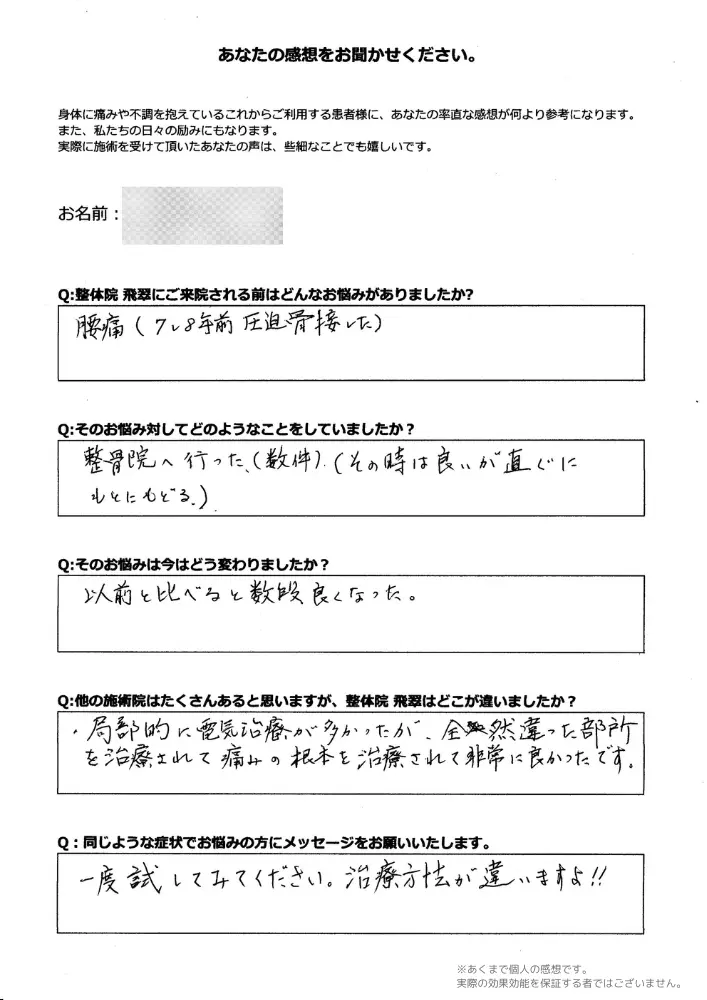 あなたの感想をお聞かせください。
身体に痛みや不調を抱えているこれからご利用する患者様に、あなたの率直な感想が何より参考になります。
また、私たちの日々の励みにもなります。
実際に施術を受けて頂いたあなたの声は、些細なことでも嬉しいです。
お名前：
Q:整体院 飛翠にご来院される前はどんなお悩みがありましたか?
腰痛（7、8年前 圧迫骨接した）
Q:そのお悩み対してどのようなことをしていましたか？
整骨院へ行った、（数件）.（その時は良いが直ぐに
もとにもどる.）.
Q:そのお悩みは今はどう変わりましたか？
以前と比べると数段良くなった。
Q:他の施術院はたくさんあると思いますが、整体院 飛翠はどこが違いましたか？
・局部的に電気治療が多かったが、全然違った部所
を治療されて痛みの根本を治療されて非常に良かったです。
Q：同じような症状でお悩みの方にメッセージをお願いいたします。
一度試してみてください。治療方法が違いますよ!!
※あくまで個人の感想です。
実際の効果効能を保証する者ではございません。